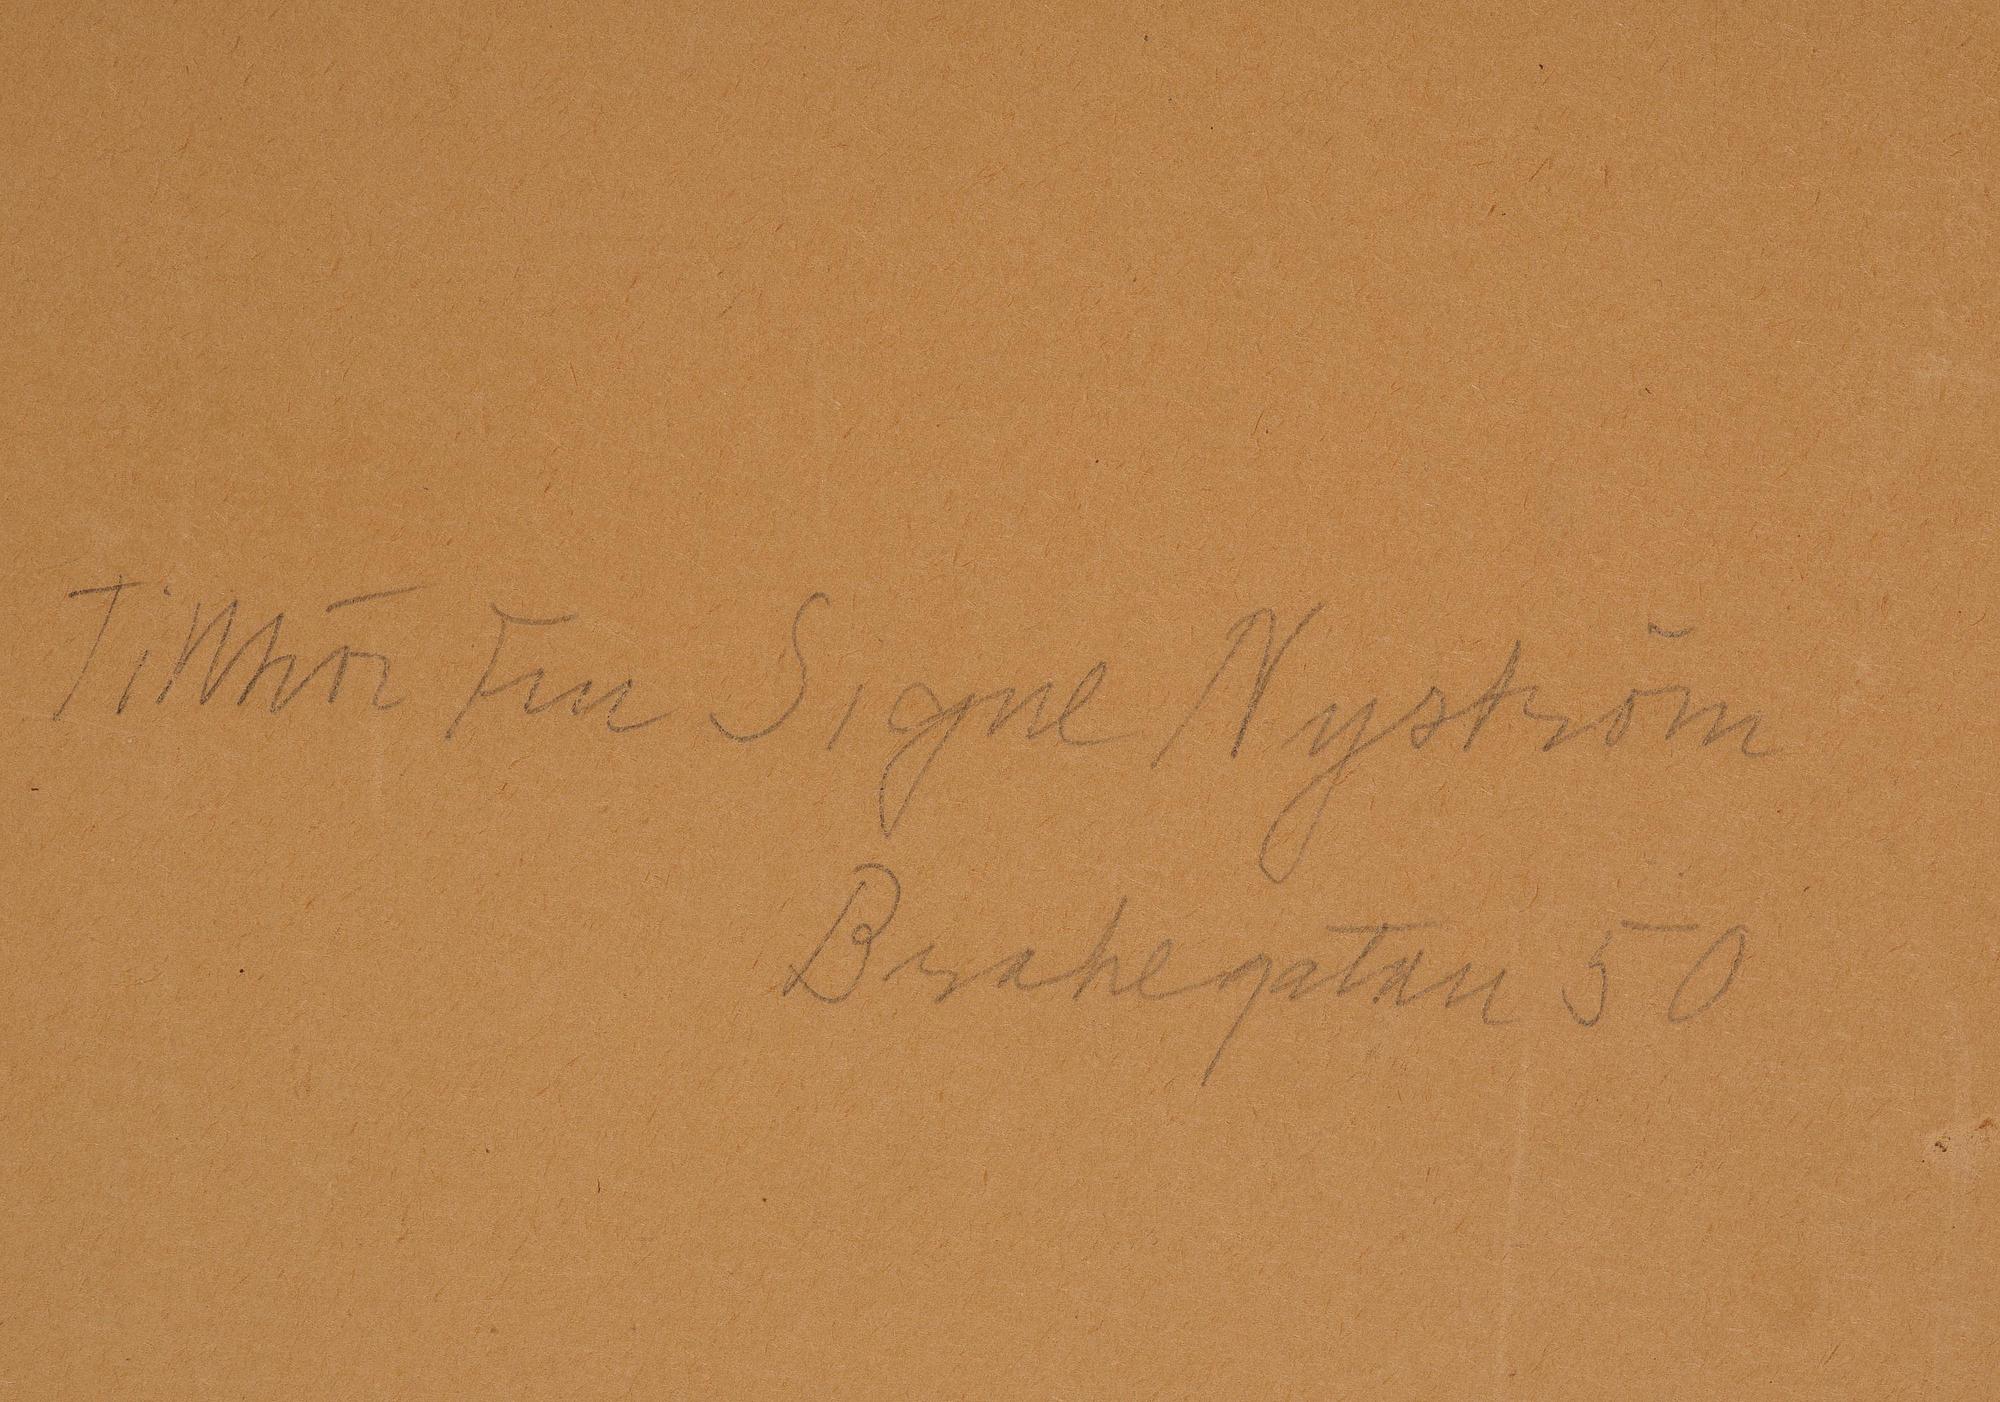 Tillhör Fru Signe Nyström
Brahegatan 50